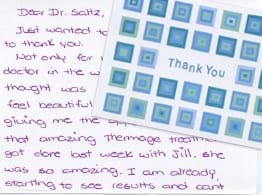 Dear Dr. Saltz,
Just wanted to
to thank you.
Not only for
doctor in the w
thought was
feel beautiful
giving me the opp
that amazing Thermage treatme
got done last week with Jill. She
was so amazing. I am already
starting to see results and cant
Thank You